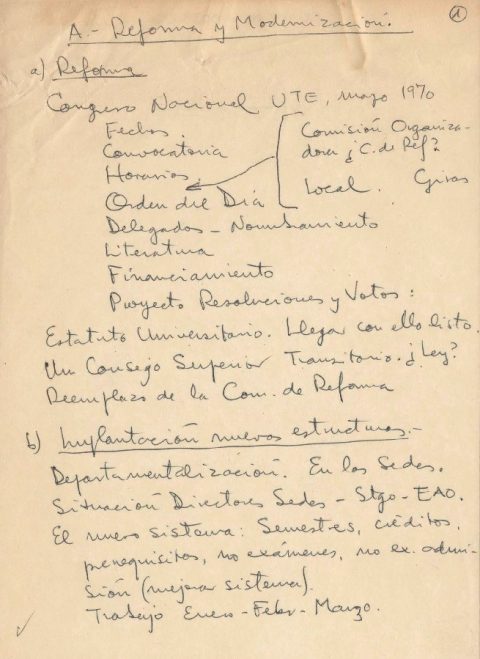 1
A.- Reforma y Modernización.
a) Reforma
Congreso Nacional UTE, mayo 1970
Fechas.
Convocatoria
Horarios.
Orden del Día
Comisión Organiza-
dora ¿C. de Ref?
Local. Giras
Delegados - Nombramiento
Literatura
Financiamiento
Proyecto Resoluciones y Votos:
Estatuto Universitario. Llegar con ello listo.
Un Consejo Superior Transitorio. ¿Ley?
Reemplazo de la Com. de Reforma
b) Implantación nuevas estructuras.-
Departamentalización. En las Sedes.
Situación Directores Sedes - Stgo - EAO.
El nuevo sistema: Semestres, créditos,
prerequisitos, no exámenes, no ex. admi-
sión (mejorar sistema).
Trabajo Enero - Febr - Marzo.